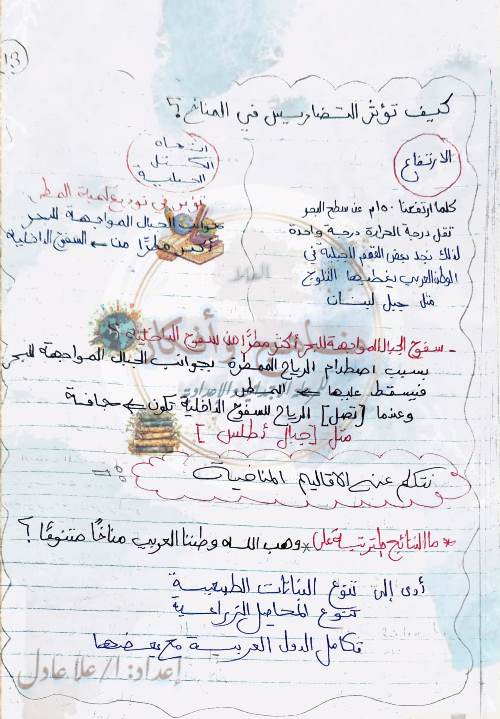 13
كيف تؤثر التضاريس في المناخ ؟
الارتفاع
كلما ارتفعنا ١٥٠م عن سطح البحر
تقل درجة الحرارة درجة واحدة
لذلك نجد بعض القمم الجبلية في
الوطن العربي يغطيها الثلوج
مثل جبل لبنان
اتجاه
الكتل
الجبلية
تؤثر في توزيع كمية المطر
جوانب الجبال المواجهة للبحر
أكثر مطرًا من السفوح الداخلية
- سفوح الجبال المواجهة للبحر أكثر مطرًا من سفوح الداخلية ؟
بسبب اصطدام الرياح الممطرة بجوانب الجبال المواجهة للبحر
فيسقط عليها ← المطر
وعندما [تصل] الرياح للسفوح الداخلية تكون ← جافة
مثل [جبال أطلس]
نتكلم عن الاقاليم المناخية
* ما النتائج المترتبة على * وهب الله وطننا العربي مناخًا متنوعًا ؟
أدى إلى تنوع النباتات الطبيعية
تنوع المحاصيل الزراعية
تكامل الدول العربية مع بعضها
إعداد: أ/ علا عادل